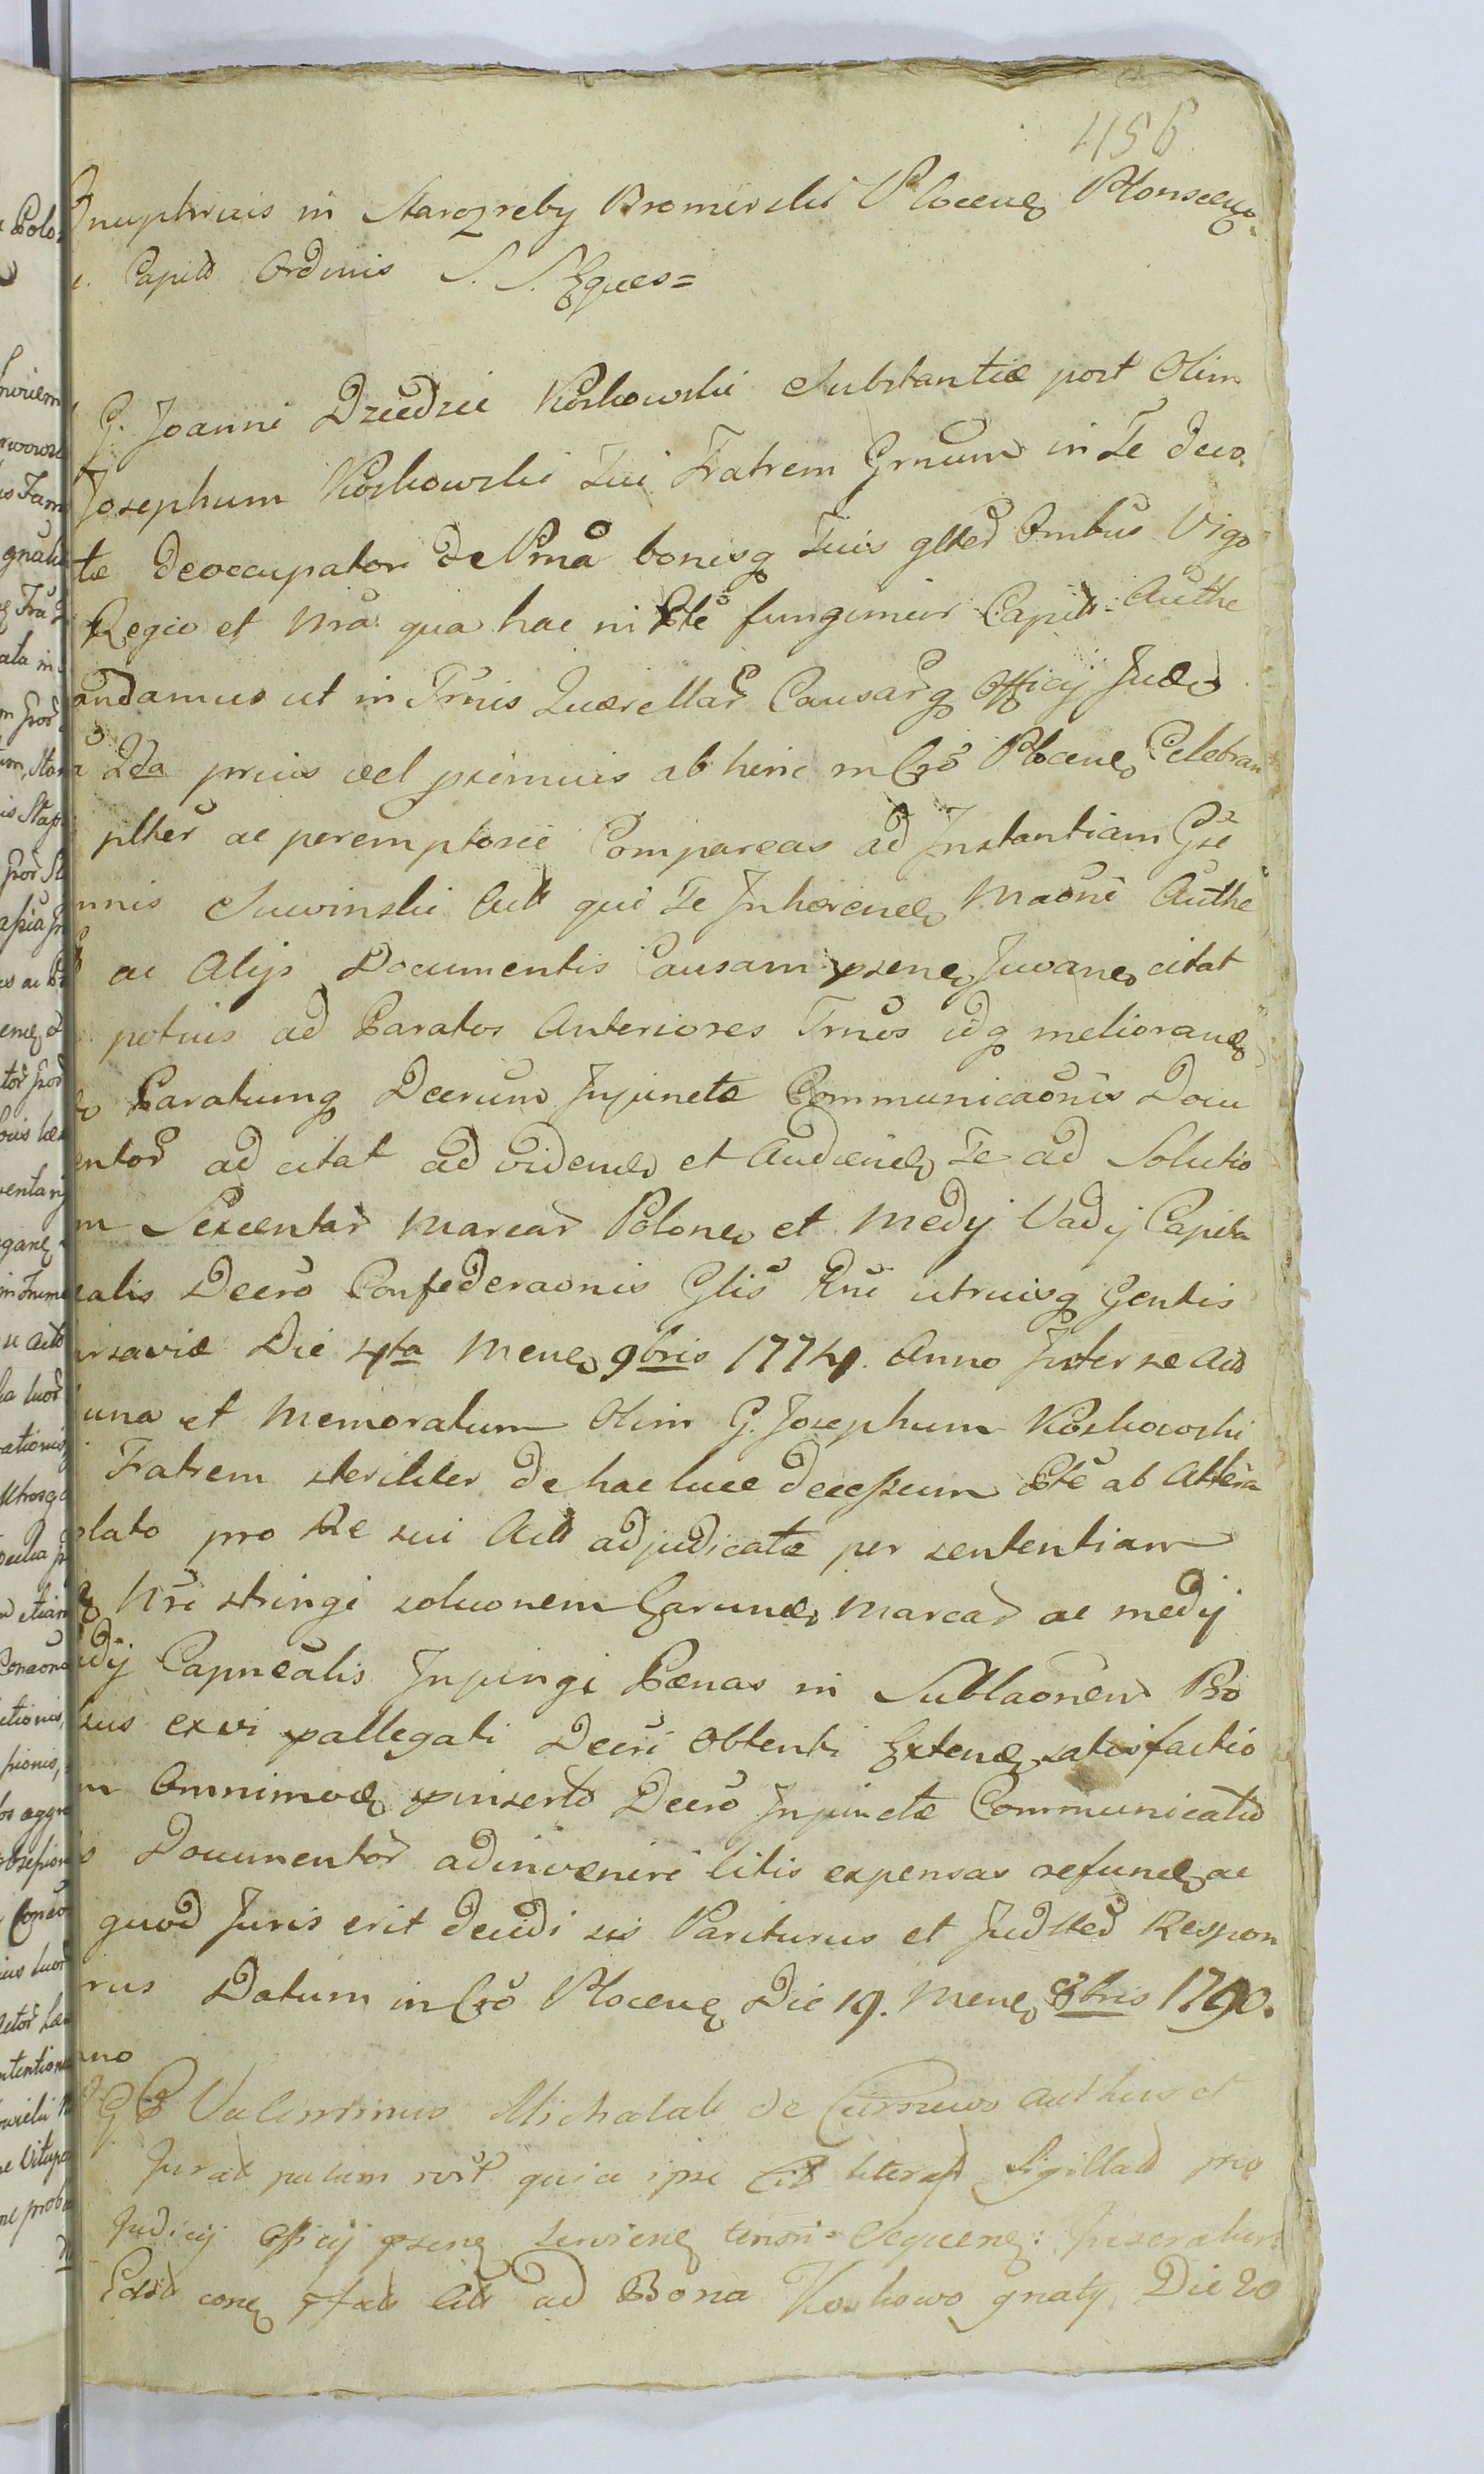 456
Onuphrius in Starozreby Bromirski Plocen Plonscen
Capitt Ordinis S. S. Eques=
G. Joanni Dziedzic Koskowski Substantiæ post Olim
Josephum Koskowski Tui Fratrem Grnum in Te devo
tæ deoccupatori de Prna bonisq Tuis glter Ombus Vigo
Regio et Nra qua hac in Pte fungimur Capit: Authe
andamus ut in Trnis Querellar Causarq Officij Juæ
2da prius vel primius ab hinc in Cro Plocen Celebran
plter ac peremptorie Compareas ad Instantiam Gse
nnis Suwinski Act qui Te Inheren Maoni Authe
ac Alijs Documentis Causam psen Juvan citat
potius ad Paratos Anteriores Trnos idq melioran
Paratumq Decrum Injunctæ Communicaonis Docu
entor ad citat ad viden et Audien Te ad Solutio
m Sexcentar Marcar Polon et Medij Vadij Capita
ealis Decro Confederaonis Glis Rni utriusq Gentis
arsaviæ Die 4ta Men 9bris 1774. Anno Inter se Act
una et Memoratum Olim G. Josephum Koskowski
Fratrem steriliter de hac luce decessum Pte ab Altera
lato pro Re sui Act adjudicatæ per sententiam
Nri stringi soluonem Earund Marcar ac medij
adij Capnealis Injungi Pænas in Sublaonem Bo
sus ex vi pallegati Decri Obtenti Exten satisfactio
m Omnimod pinserto Decro Injunctæ Communicatio
s Documentor adinveniri litis expensas refund ac
quod Juris erit decidi sis Pariturus et Judlter Respon
rus Datum in Cro Plocen Die 19. Men 8bris 1790.
nno
Valentinus Michalak de Ciernewo authus et
Jurat palam rort quia ipse literar Sigillat pro
Judicij Officij psen servien tenori Sequen: Inseratur
ad Bona Koskowo gnaty Die 20